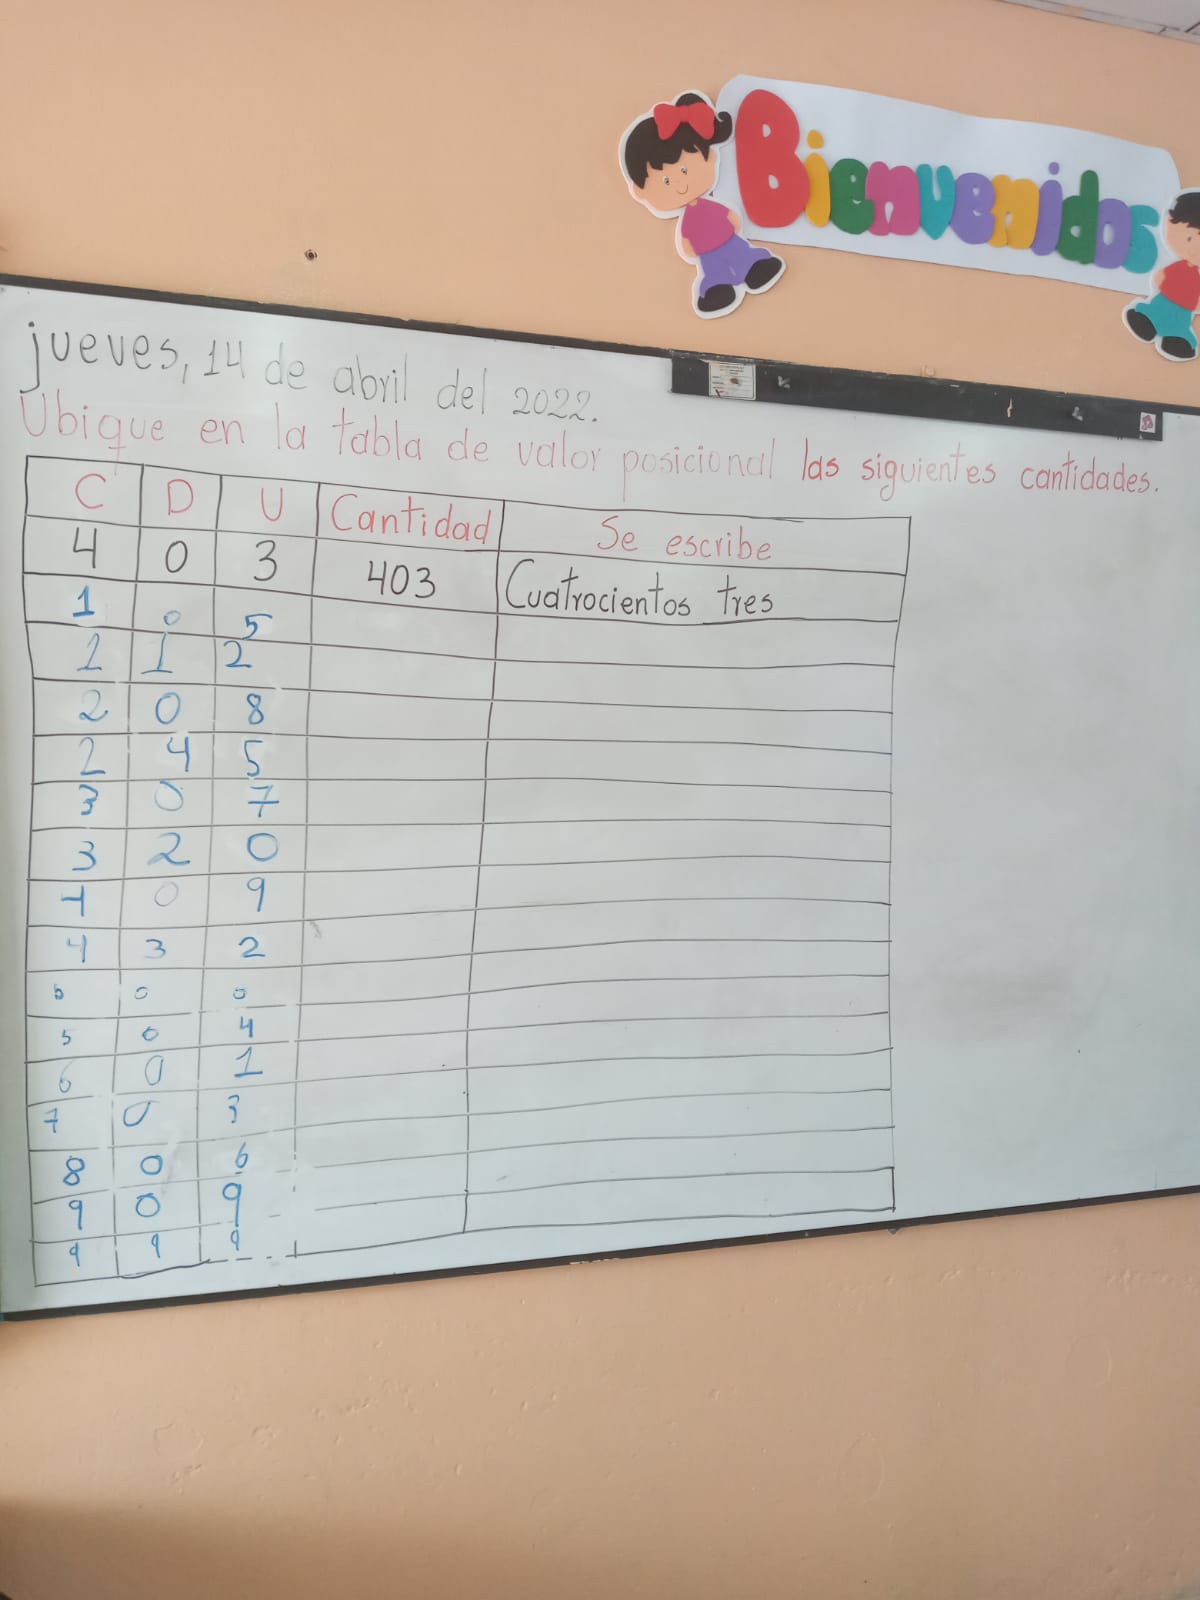 Bienvenidos
jueves, 14 de abril del 2022.
Ubique en la tabla de valor posicional las siguientes cantidades.
C D U Cantidad Se escribe
4 0 3 403 Cuatrocientos tres
1 0 5
2 1 2
2 0 8
2 4 5
3 0 7
3 2 0
4 0 9
4 3 2
5 0 0
5 0 4
6 0 1
7 0 3
8 0 6
9 0 9
9 9 9